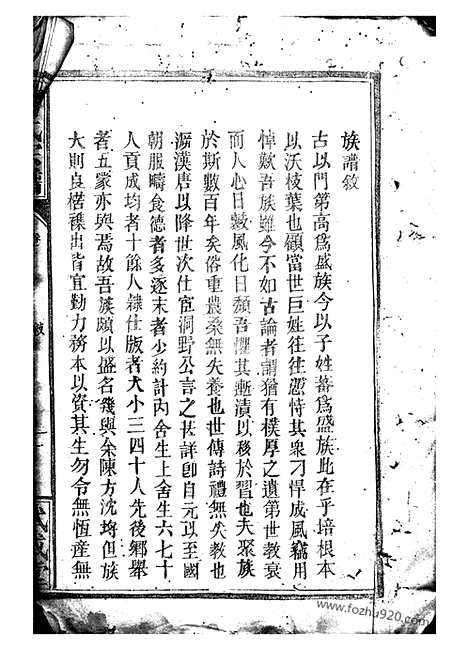 族譜敘
古以門第高為盛族今以子姓蕃為盛族此在乎培根本
以沃枝葉也顧當世巨姓往往憑恃其衆刁悍成風竊用
悼歎吾族雖今不如古論者謂猶有樸厚之遺第世教衰
而人心日薮風化日頹吾懼其漸漬以移於習也夫聚族
於斯數百年矣俗重農桑無失養也世傳詩禮無失教也
溯漢唐以降世次仕宦洞野公言之甚詳即自元以至國
朝服疇食德者多逐末者少約計內舍生上舍生六七十
人貢成均者十餘人隸仕版者大小三四十人先後鄉舉
者五家亦與焉故吾族頗以盛名幾與余陳方沈埒但族
大則良楛雜出皆宜勤力務本以資其生勿令無恆產無
敘
www.fozhu920.com